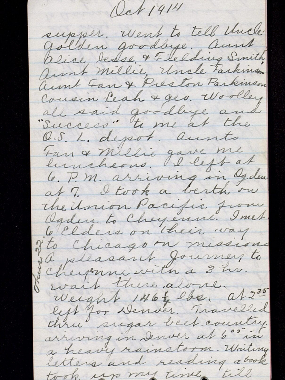 Oct 1914
supper. Went to tell Uncle
Golden goodbye. Aunt
Alice, Jesse, & Fielding Smith,
Aunt Millie, Uncle Parkinson
Aunt Fan & Preston Parkinson
Cousin Leah & Geo. Woolley
all said goodbye and
"Success" to me at the
O.S.L. depot. Aunts
Fan & Millie gave me
luncheons. I left at
6. P.M. arriving in Ogden
at 7. I took a berth on
the Union Pacific from
Ogden to Cheyenne. I met
6 Elders on their way
to Chicago on missions
A pleasant journey to
Cheyenne with a 3 hr.
wait there alone.
Weight 146½ lbs. at 2 35
left for Denver. Travelled
thru sugar beet country
arriving in Denver at 6 in
a heavy rainstorm. Writing
letters and reading a book
took up my time till